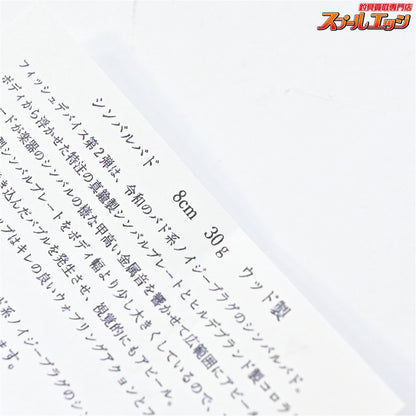 釣具買取専門店
スプールエッジ
シンバルバド 8cm 30g ウッド製
フィッシュデバイス第2弾は、令和のバド系ノイジープラグのシンバルバド。
ボディから浮かせた特注の真鍮製シンバルプレートとヒルデブランド製コロラ
ードが楽器のシンバルの様な甲高い金属音を響かせて広範囲にアピー
型シンバルプレートをボディ幅より少し大きくしているので、
き込んだバブルを発生させ、視覚的にもアピール。
ップはキレの良いウォブリングアクションとフ
ド系ノイジープラグのシン
ます。